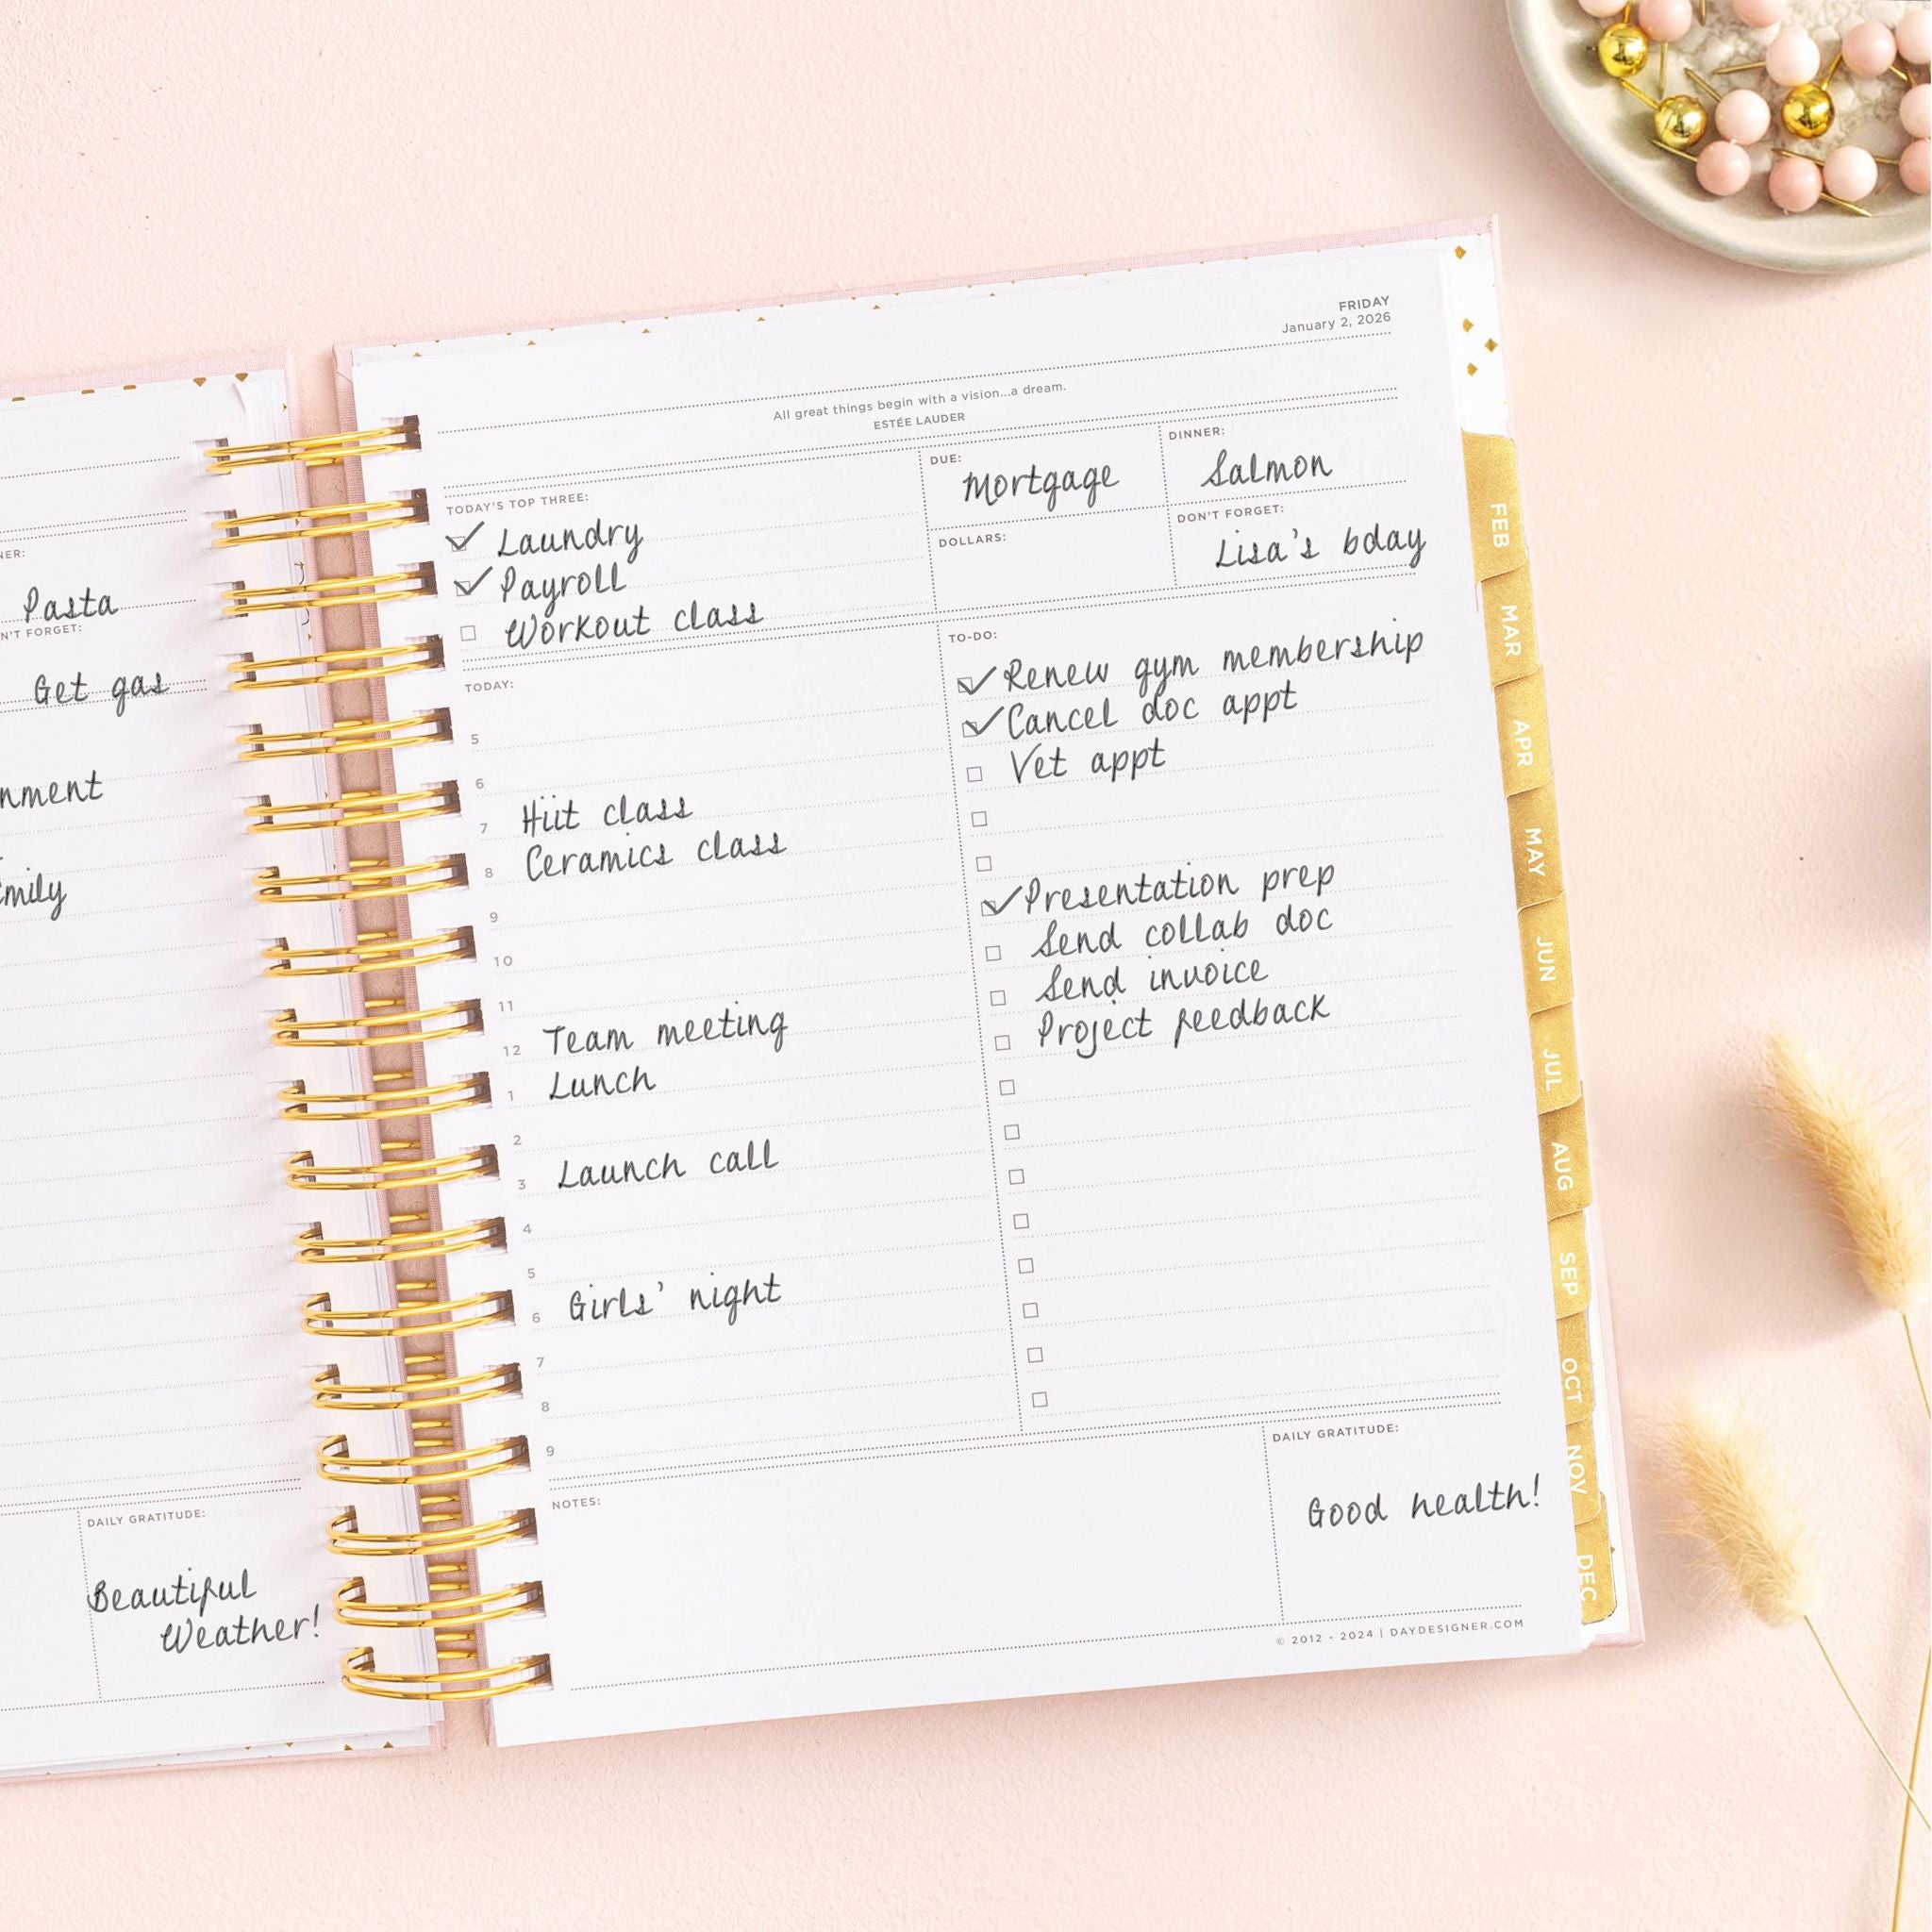 NER:
Pasta
N'T FORGET:
Get gas
nment
Emily
DAILY GRATITUDE:
Beautiful
Weather!
FRIDAY
January 2, 2026
All great things begin with a vision...a dream.
ESTÉE LAUDER
TODAY'S TOP THREE:
Laundry
Payroll
Workout class
DUE:
Mortgage
DINNER:
Salmon
DOLLARS:
DON'T FORGET:
Lisa's bday
TODAY:
5
6
7 Hiit class
8 Ceramics class
9
10
11
12 Team meeting
1 Lunch
2
3 Launch call
4
5
6 Girls' night
7
8
9
TO-DO:
Renew gym membership
Cancel doc appt
Vet appt
Presentation prep
Send collab doc
Send invoice
Project feedback
NOTES:
DAILY GRATITUDE:
Good health!
© 2012 - 2024 | DAYDESIGNER.COM
FEB
MAR
APR
MAY
JUN
JUL
AUG
SEP
OCT
NOV
DEC